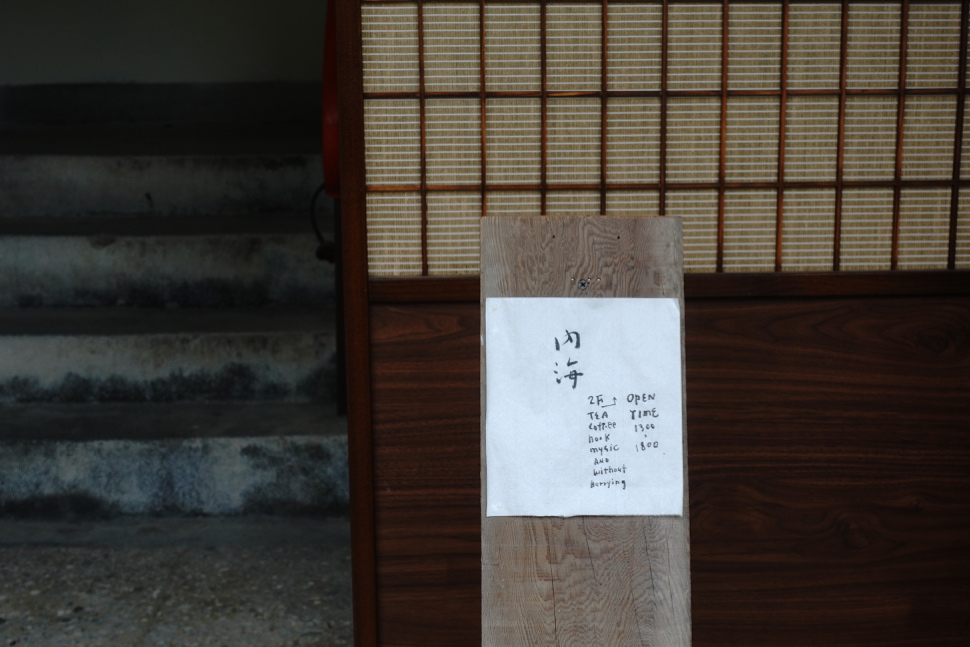 内
海
2F OPEN
TEA TIME
coffee 1300
book
music 1800
AND
without